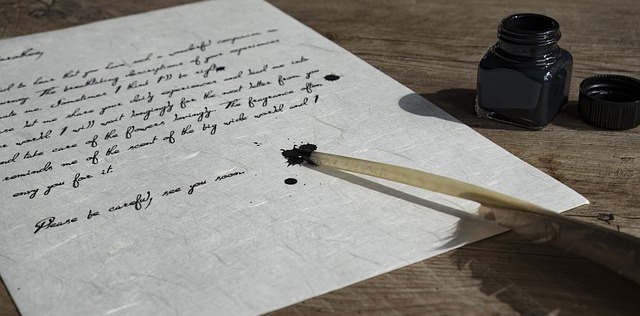 to hear that you have such a wonderful companion on
The breathtaking descriptions of your experiences
me. Sometimes I think I'll be right and lead me into
let me share your daily experiences
world. I will wait longingly for the next letter from you
and take care of the flowers lovingly. The fragrance often
reminds me of the scent of the big wide world and I
envy you for it.
Please be careful, see you soon.